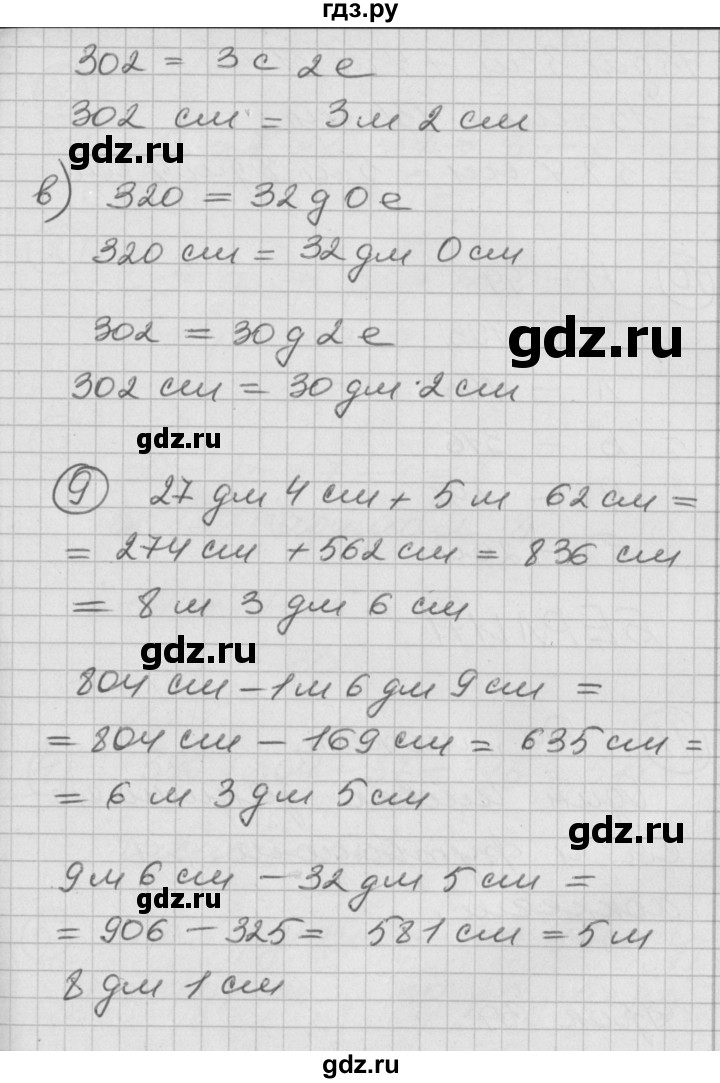 гдз.ру
302 = 3 с 2 е
302 см = 3 м 2 см
gdz.ru
в) 320 = 32 д 0 е
320 см = 32 дм 0 см
gdz.ru
302 = 30 д 2 е
302 см = 30 дм 2 см
gdz.ru
9 27 дм 4 см + 5 м 62 см =
= 274 см + 562 см = 836 см
= 8 м 3 дм 6 см
gdz.ru
804 см - 1 м 6 дм 9 см =
= 804 см - 169 см = 635 см =
= 6 м 3 дм 5 см
gdz.ru
9 м 6 см - 32 дм 5 см =
gdz.ru
= 906 - 325 = 581 см = 5 м
8 дм 1 см
gdz.ru